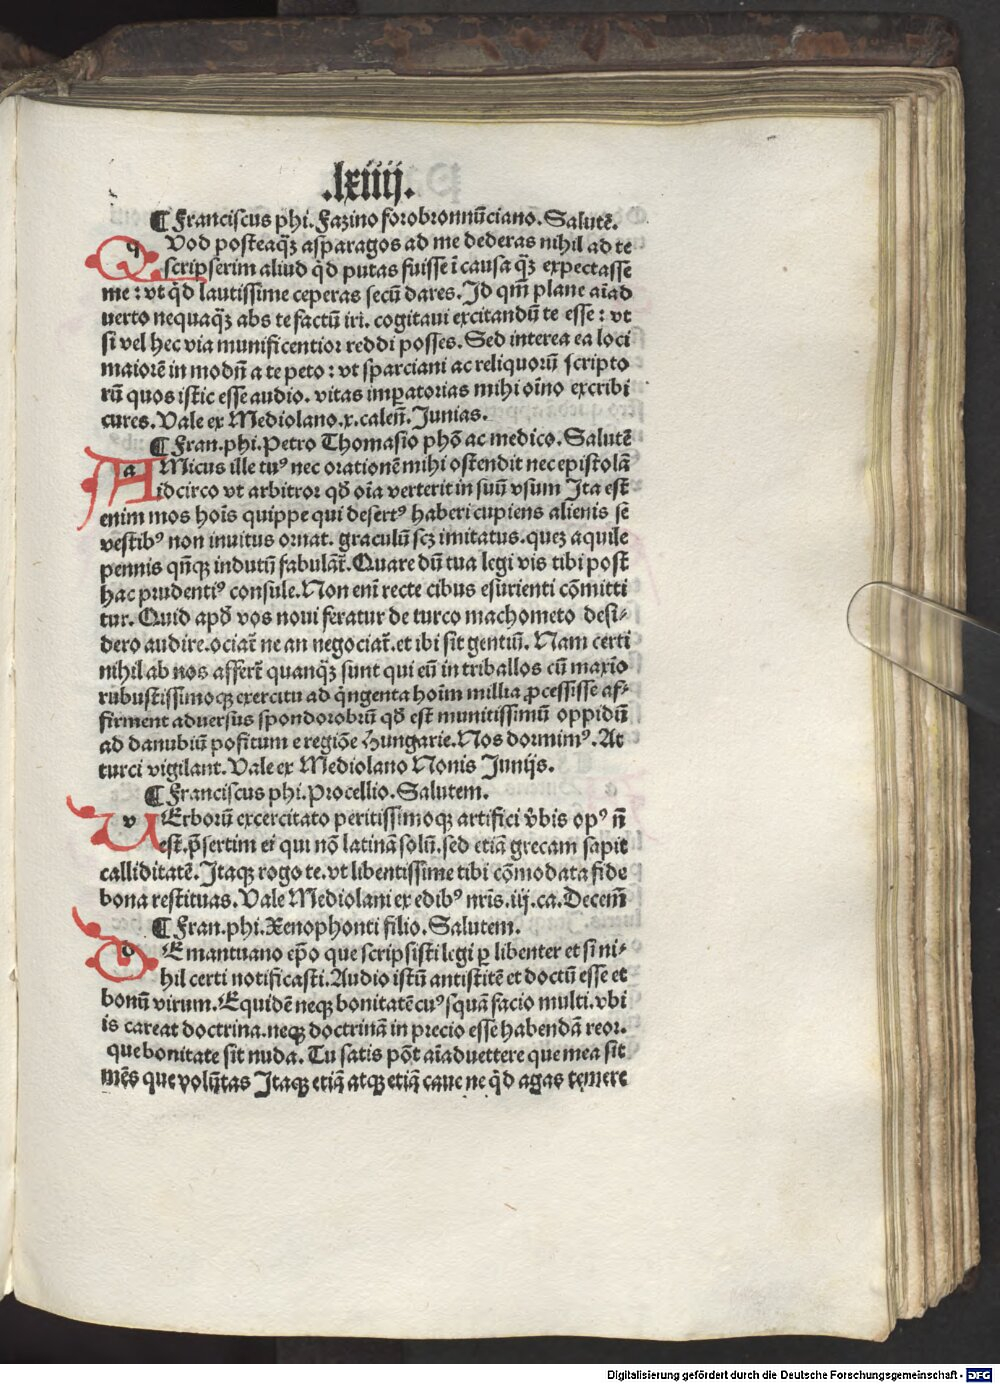 .lxiiij.
¶ Franciscus phi. Fazino forobronnũciano. Salutē.
qUod posteaq̃ꝫ asparagos ad me dederas nihil ad te
scripserim aliud q̇d putas fuisse ĩ causa q̃ꝫ expectasse
me : vt q̇d lautissime ceperas secũ dares. Id qm̃ plane aĩad
uerto nequaq̃ꝫ abs te factũ iri. cogitaui excitandũ te esse : vt
si vel hec via munificentior reddi posses. Sed interea ea loci
maiorē in modũ a te peto : vt sparciani ac reliquorũ scripto
rũ quos istic esse audio. vitas imꝑatorias mihi oĩno excribi
cures. Vale ex Mediolano. x. caleñ. Junias.
¶ Fran. phi. Petro Thomasio phõ ac medico. Salutē
aMicus ille tuꝰ nec orationē mihi ostendit nec epistolã
idcirco vt arbitror qđ oĩa verterit in suũ vsum Ita est
enim mos hoĩs quippe qui desertꝰ haberi cupiens alienis se
vestibꝰ non inuitus ornat. graculũ scꝫ imitatus. queꝫ aquile
pennis qñqꝫ indutũ fabulãt̃. Quare dũ tua legi vis tibi post
hac prudentiꝰ consule. Non eni recte cibus esurienti cõmitti
tur. Quid apđ vos noui feratur de turco machometo desi⸗
dero audire. ociat̃ ne an negociat̃. et ibi sit gentiũ. Nam certi
nihil ab nos affert̃ quanq̃ꝫ sunt qui eũ in triballos cũ maxio
rubustissimoqꝫ exercitu ad q̇ngenta hoĩm millia ꝓcessisse af⸗
firment aduersus spondorobrũ qđ est munitissimũ oppidũ
ad danubiũ positum e regiõe Hungarie. Nos dormimꝰ. At
turci vigilant. Vale ex Mediolano Nonis Junijs.
¶ Franciscus phi. Procellio. Salutem.
vErborũ excercitato peritissimoqꝫ artifici v̉bis opꝰ ñ
est. p̃sertim ei qui nõ latinã solũ. sed etiã grecam sapit
calliditatē. Itaqꝫ rogo te. vt libentissime tibi cõmodata fide
bona restituas. Vale Mediolani ex edibꝰ nr̃is. iij. ca. Decem̃
¶ Fran. phi. Xenophonti filio. Salutem.
dE mantuano ep̃o que scripsisti legi ꝑ libenter et si ni⸗
hil certi notificasti. Audio istũ antistitē et doctũ esse et
bonũ virum. Equidē neqꝫ bonitatē cuꝰsquã facio multi. vbi
is careat doctrina. neqꝫ doctrinã in precio esse habendã reor.
que bonitate sit nuda. Tu satis põt aĩaduettere que mea sit
mēs que volũtas Itaqꝫ etiã atqꝫ etiã caue ne q̇d agas temere
Digitalisierung gefördert durch die Deutsche Forschungsgemeinschaft - DFG